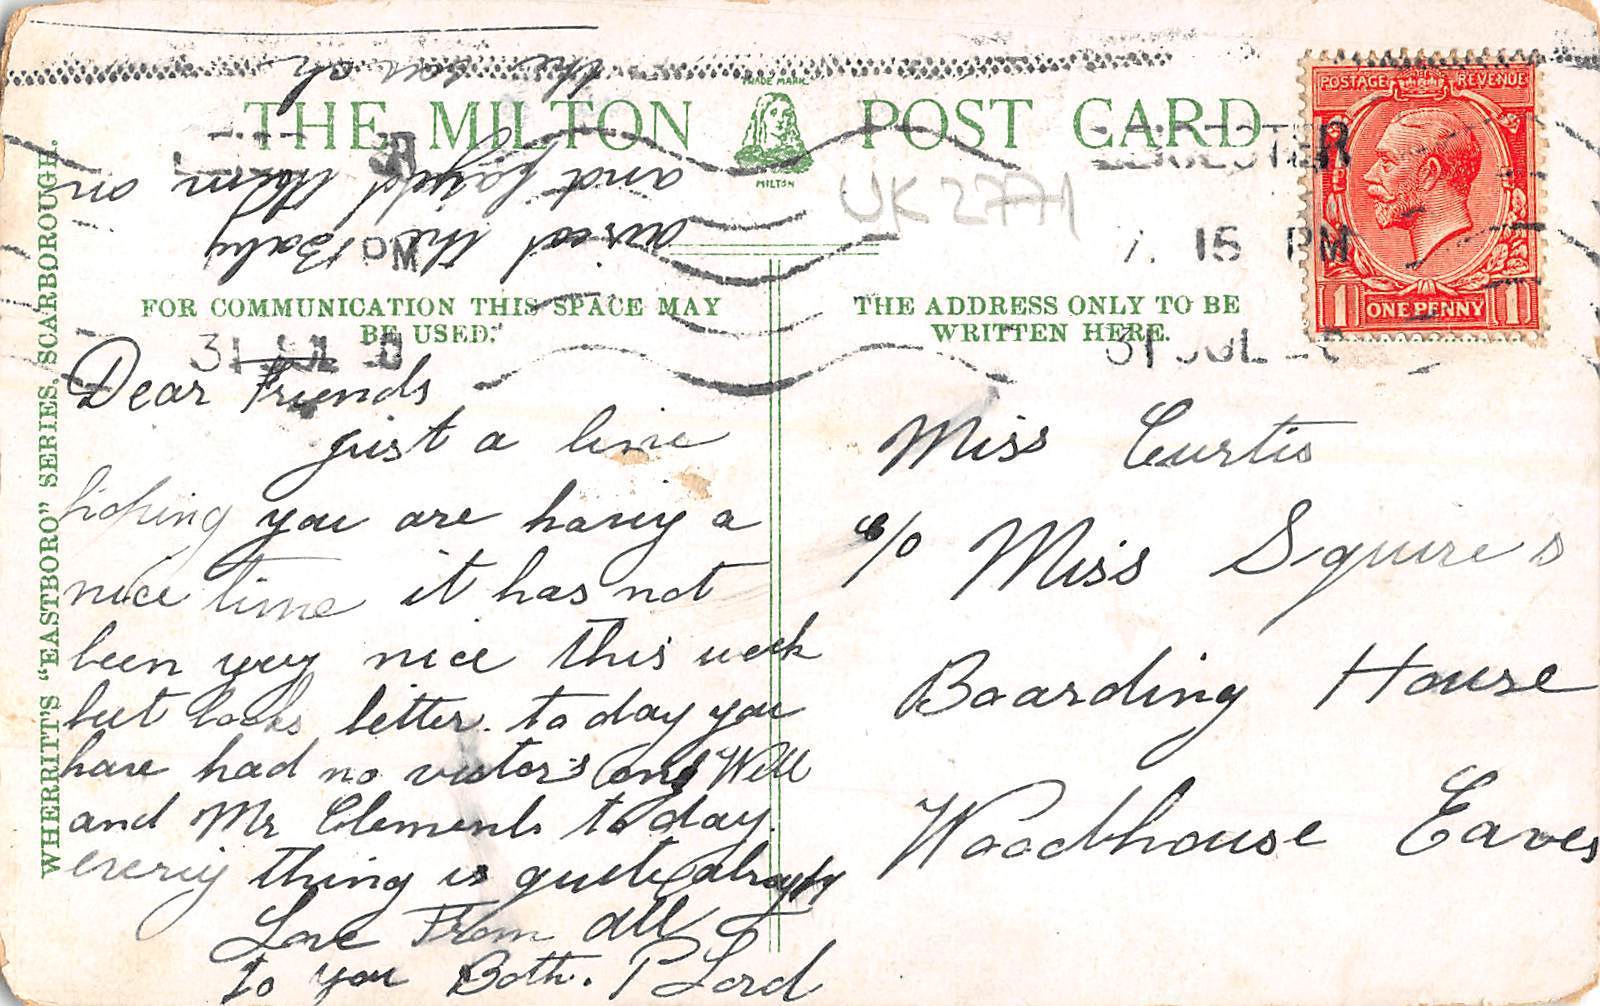 THE MILTON POST CARD
TRADE MARK
MILTON
POSTAGE REVENUE
1 ONE PENNY 1
LEICESTER
7. 15 PM
31 JUL
PM
31 JUL
UK 2771
WHERRITT'S "EASTBORO" SERIES, SCARBOROUGH.
FOR COMMUNICATION THIS SPACE MAY
BE USED.
THE ADDRESS ONLY TO BE
WRITTEN HERE.
Dear Friends
just a line
hoping you are having a
nice time it has not
been very nice this week
but looks better to day you
have had no vistors only Will
and Mr Clements to day.
everiy thing is quite alright
Love From all
to you Both. P Lord
the Baby
and on
the
Miss Curtis
c/o Miss Squire s
Boarding House
Woodhouse Eaves